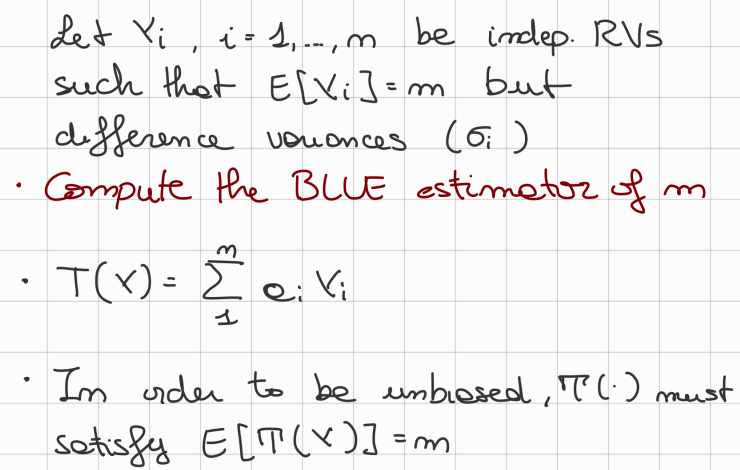 Let Yi, i = 1, ..., n be indep. RVs
such that E[Yi] = m but
difference variances (σi )
· Compute the BLUE estimator of m
· T(Y) = n∑1 ai Yi
· In order to be unbiased, T(·) must
satisfy E[T(Y)] = m